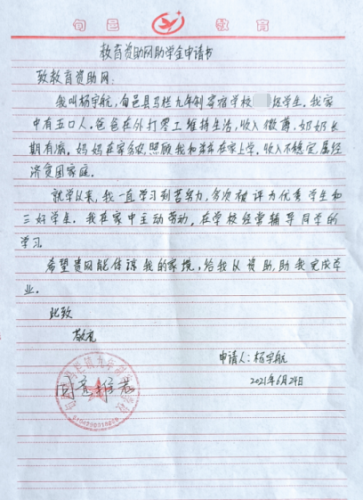 旬邑 教育
教育资助网助学金申请书
致教育资助网：
我叫杨宇航，旬邑县马栏九年制寄宿学校 班学生。我家
中有五口人，爸爸在外打零工维持生活，收入微薄，奶奶长
期有病，妈妈在家务农，照顾我和弟弟在家上学，收入不稳定，属经
济贫困家庭。
就学以来，我一直学习刻苦努力，多次被评为优秀学生和
三好学生。我在家中主动劳动，在学校经常辅导同学的
学习。
希望贵网能体谅我的家境，给我以资助，助我完成学
业。
此致
敬礼
申请人：杨宇航
2021年6月29日